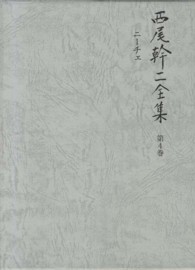 西尾幹二全集
第4巻
ニーチェ